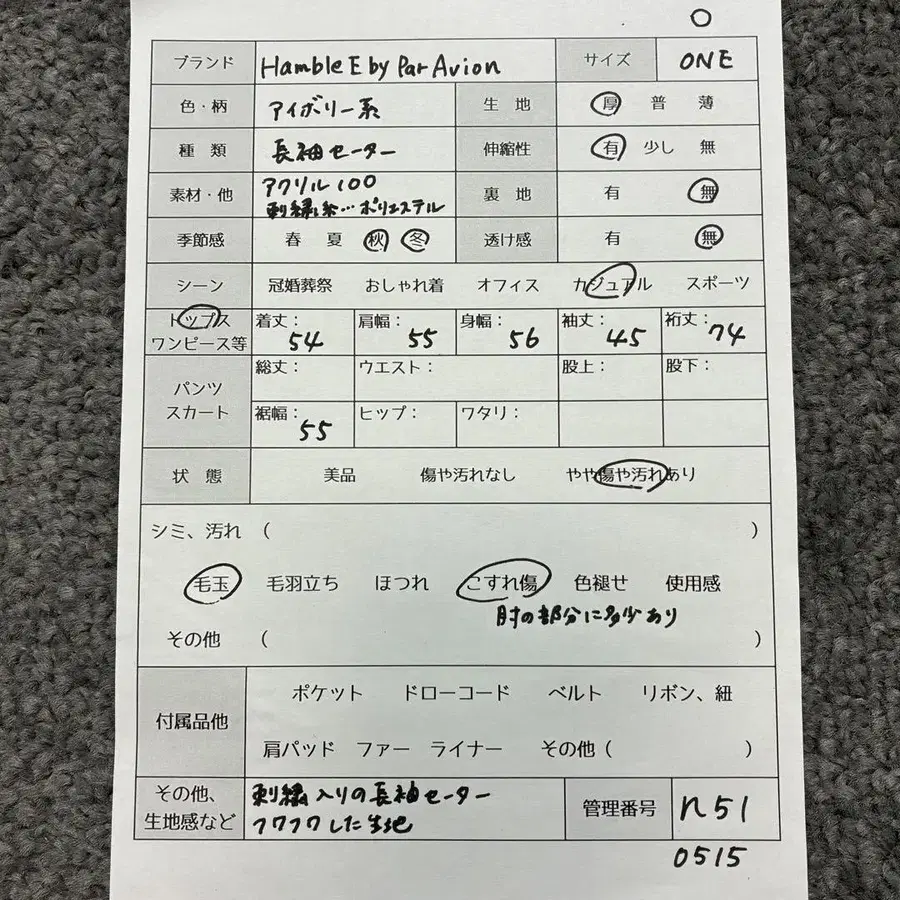 ブランド Hamble E by Par Avion サイズ ONE
色・柄 アイボリー系 生地 厚 普 薄
種類 長袖セーター 伸縮性 有 少し 無
素材・他 アクリル100
刺繍糸…ポリエステル 裏地 有 無
季節感 春 夏 秋 冬 透け感 有 無
シーン 冠婚葬祭 おしゃれ着 オフィス カジュアル スポーツ
トップス
ワンピース等 着丈:54 肩幅:55 身幅:56 袖丈:45 裄丈:74
パンツ
スカート 総丈: ウエスト: 股上: 股下:
裾幅:55 ヒップ: ワタリ:
状態 美品 傷や汚れなし やや傷や汚れあり
シミ、汚れ ( )
毛玉 毛羽立ち ほつれ こすれ傷 色褪せ 使用感
肘の部分に多少あり
その他 ( )
付属品他 ポケット ドローコード ベルト リボン、紐
肩パッド ファー ライナー その他 ( )
その他、
生地感など 刺繍入りの長袖セーター
フワフワした生地 管理番号 n51
0515